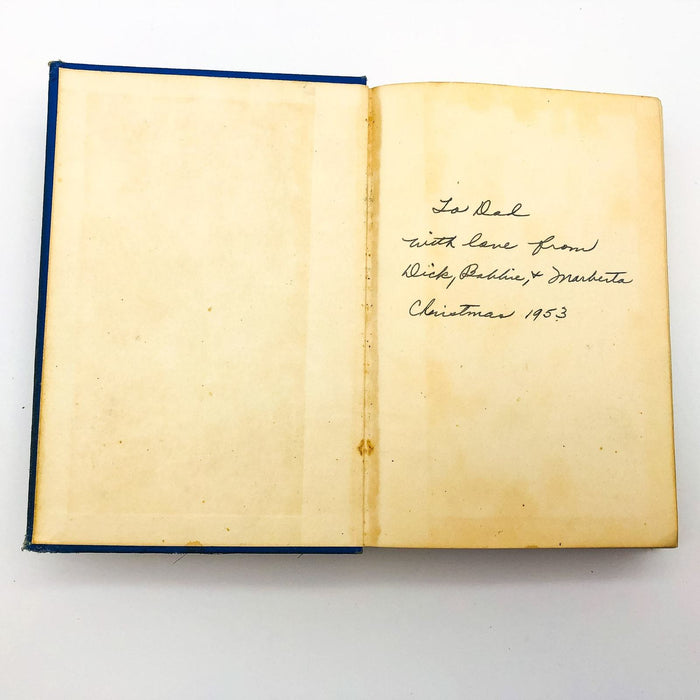 To Dad
with love from
Dick, Bobbie, + Marberta
Christmas 1953